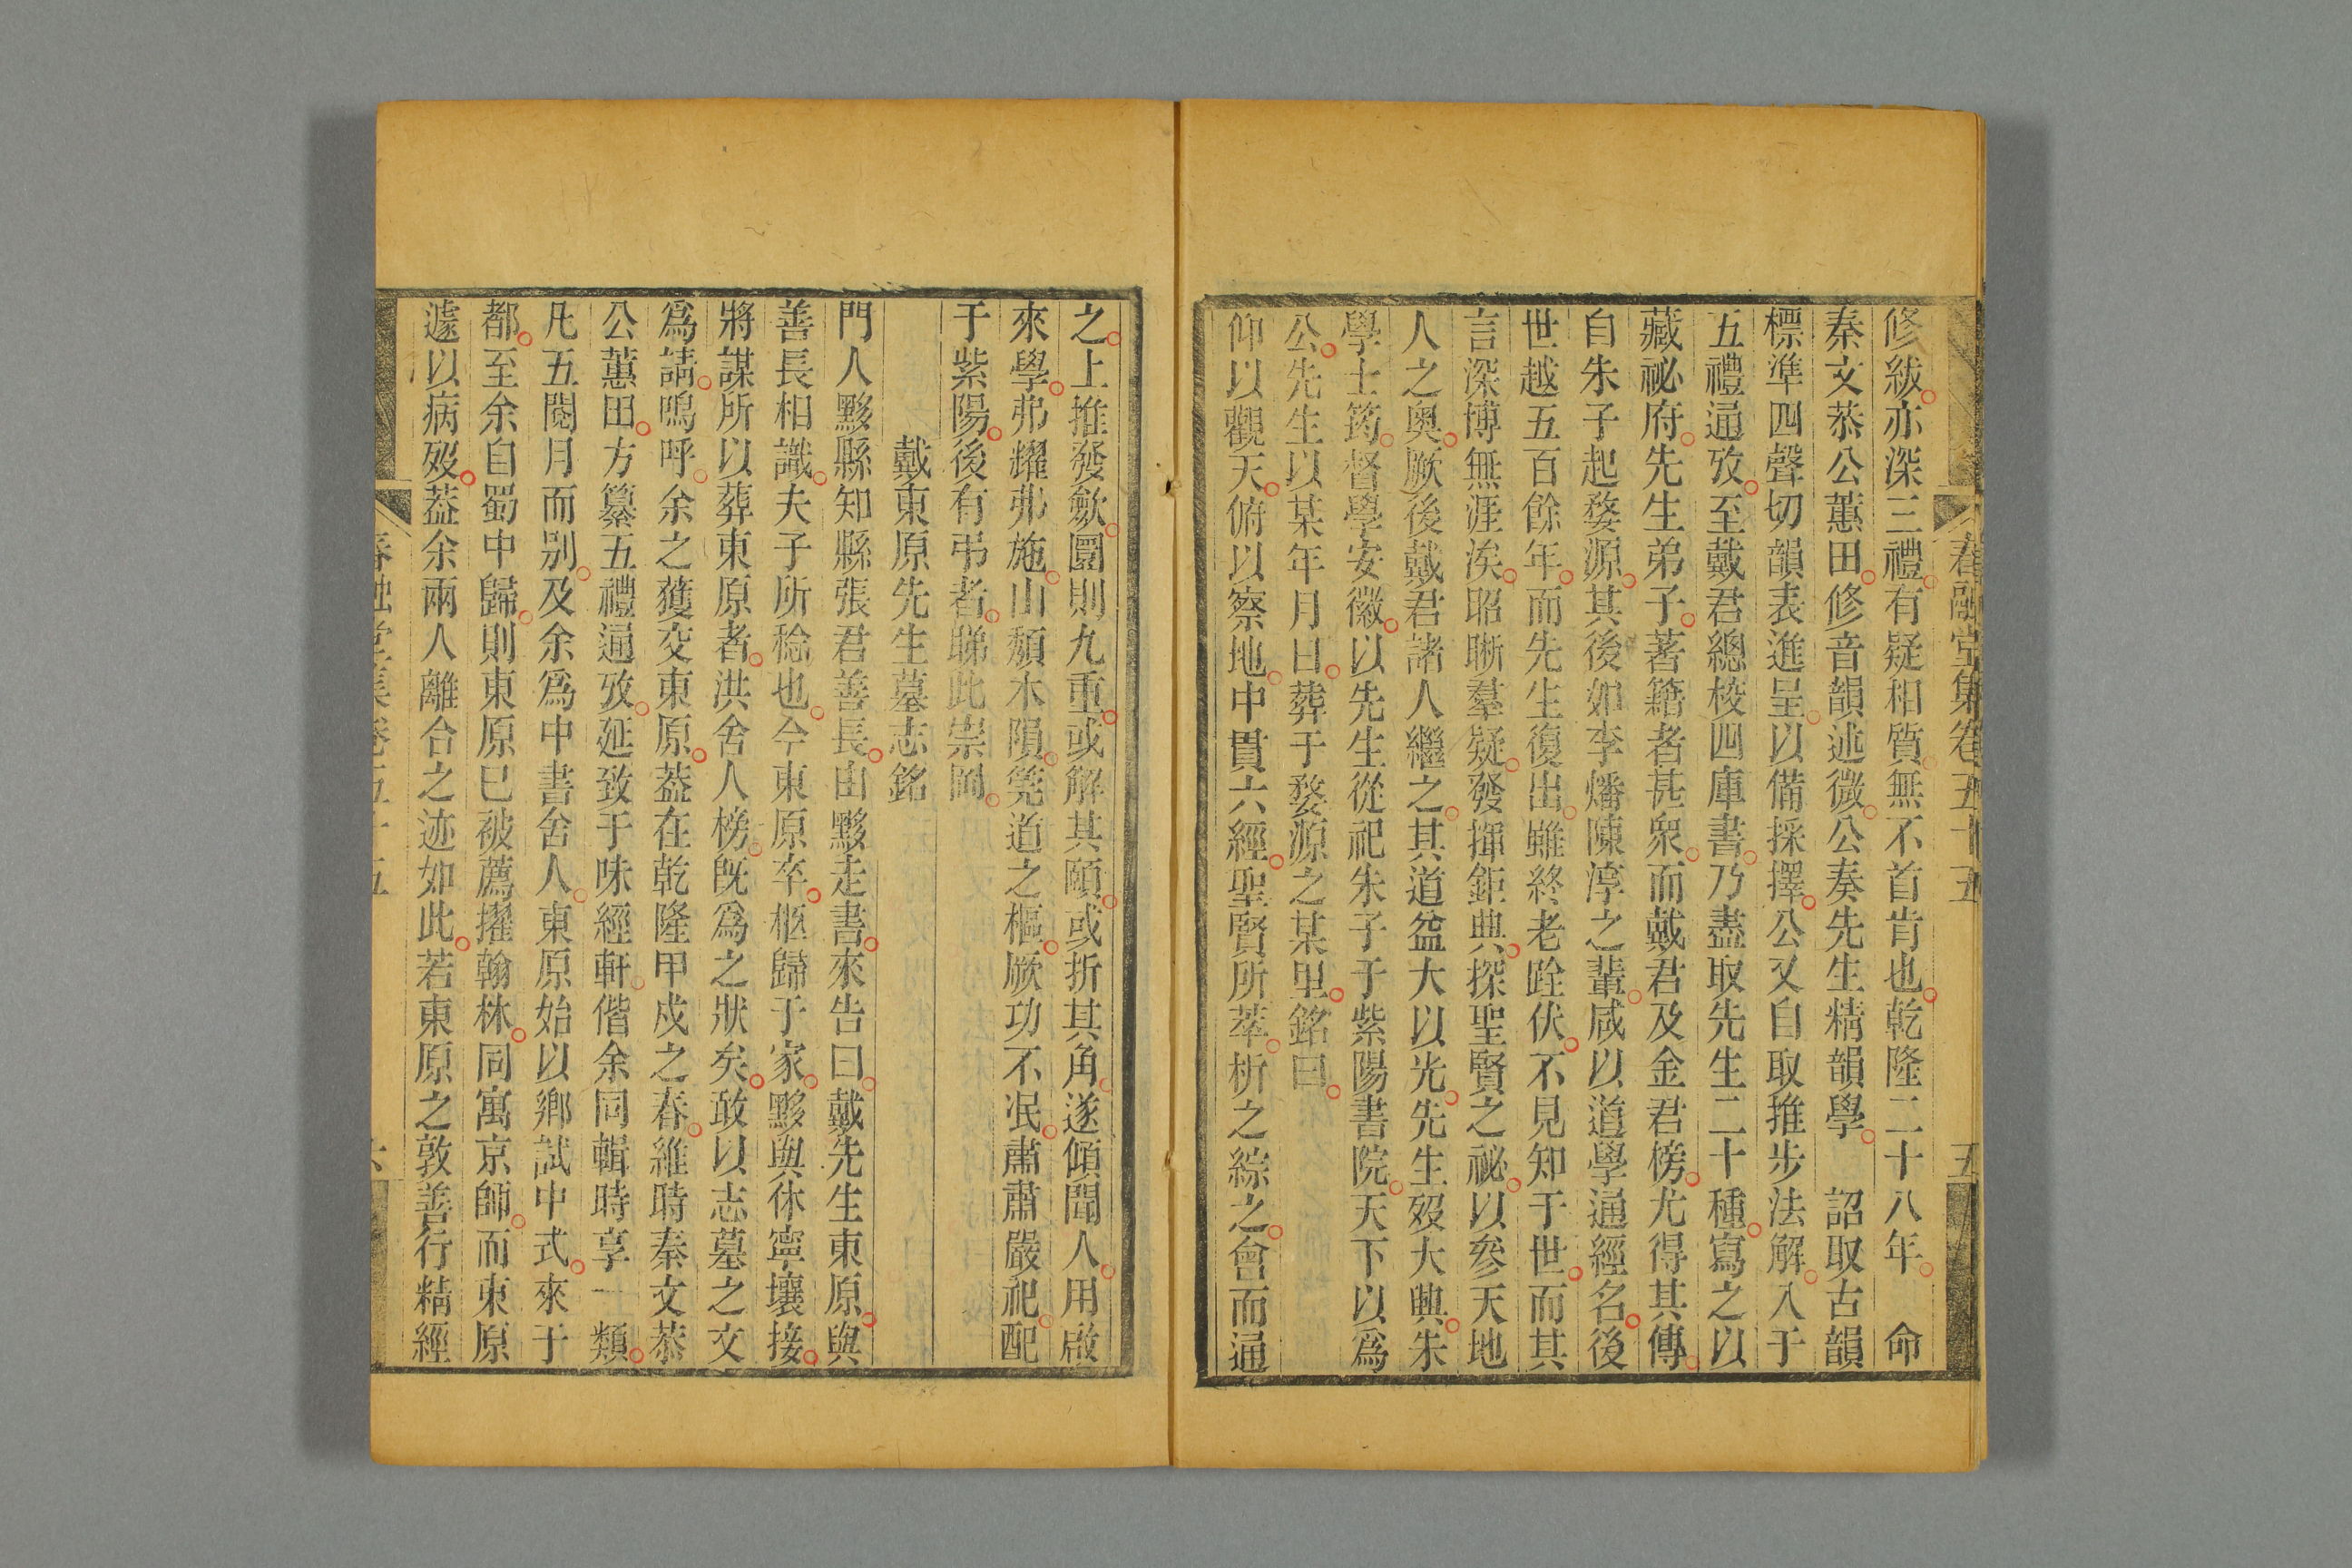 春融堂集卷五十五
五
修紱亦深三禮有疑相質無不首肯也乾隆二十八年　命
秦文恭公蕙田修音韻述微公奏先生精韻學　詔取古韻
標準四聲切韻表進呈以備採擇公又自取推步法解入于
五禮通攷至戴君總校四庫書乃盡取先生二十種寫之以
藏祕府先生弟子著籍者甚衆而戴君及金君榜尤得其傳
自朱子起婺源其後如李燔陳淳之輩咸以道學通經名後
世越五百餘年而先生復出雖終老跧伏不見知于世而其
言深博無涯涘昭晰羣疑發揮鉅典探聖賢之祕以參天地
人之奧厥後戴君諸人繼之其道益大以光先生歿大興朱
學士筠督學安徽以先生從祀朱子于紫陽書院天下以爲
公先生以某年月日葬于婺源之某里銘曰
仰以觀天俯以察地中貫六經聖賢所萃析之綜之會而通
之上推發斂圜則九重或解其頤或折其角遂傾聞人用啟
來學弗耀弗施山頹木隕蕘道之樞厥功不泯肅肅嚴祀配
于紫陽後有弔者睇此崇岡
戴東原先生墓志銘
門人黟縣知縣張君善長由黟走書來告曰戴先生東原與
善長相識夫子所稔也今東原卒柩歸于家黟與休寧壤接
將謀所以葬東原者洪舍人榜旣爲之狀矣敢以志墓之文
爲請嗚呼余之獲交東原葢在乾隆甲戌之春維時秦文恭
公蕙田方纂五禮通攷延致于味經軒偕余同輯時享一類
凡五閱月而別及余爲中書舍人東原始以鄉試中式來于
都至余自蜀中歸則東原已被薦擢翰林同寓京師而東原
遽以病歿葢余兩人離合之迹如此若東原之敦善行精經
春融堂集卷五十五
六